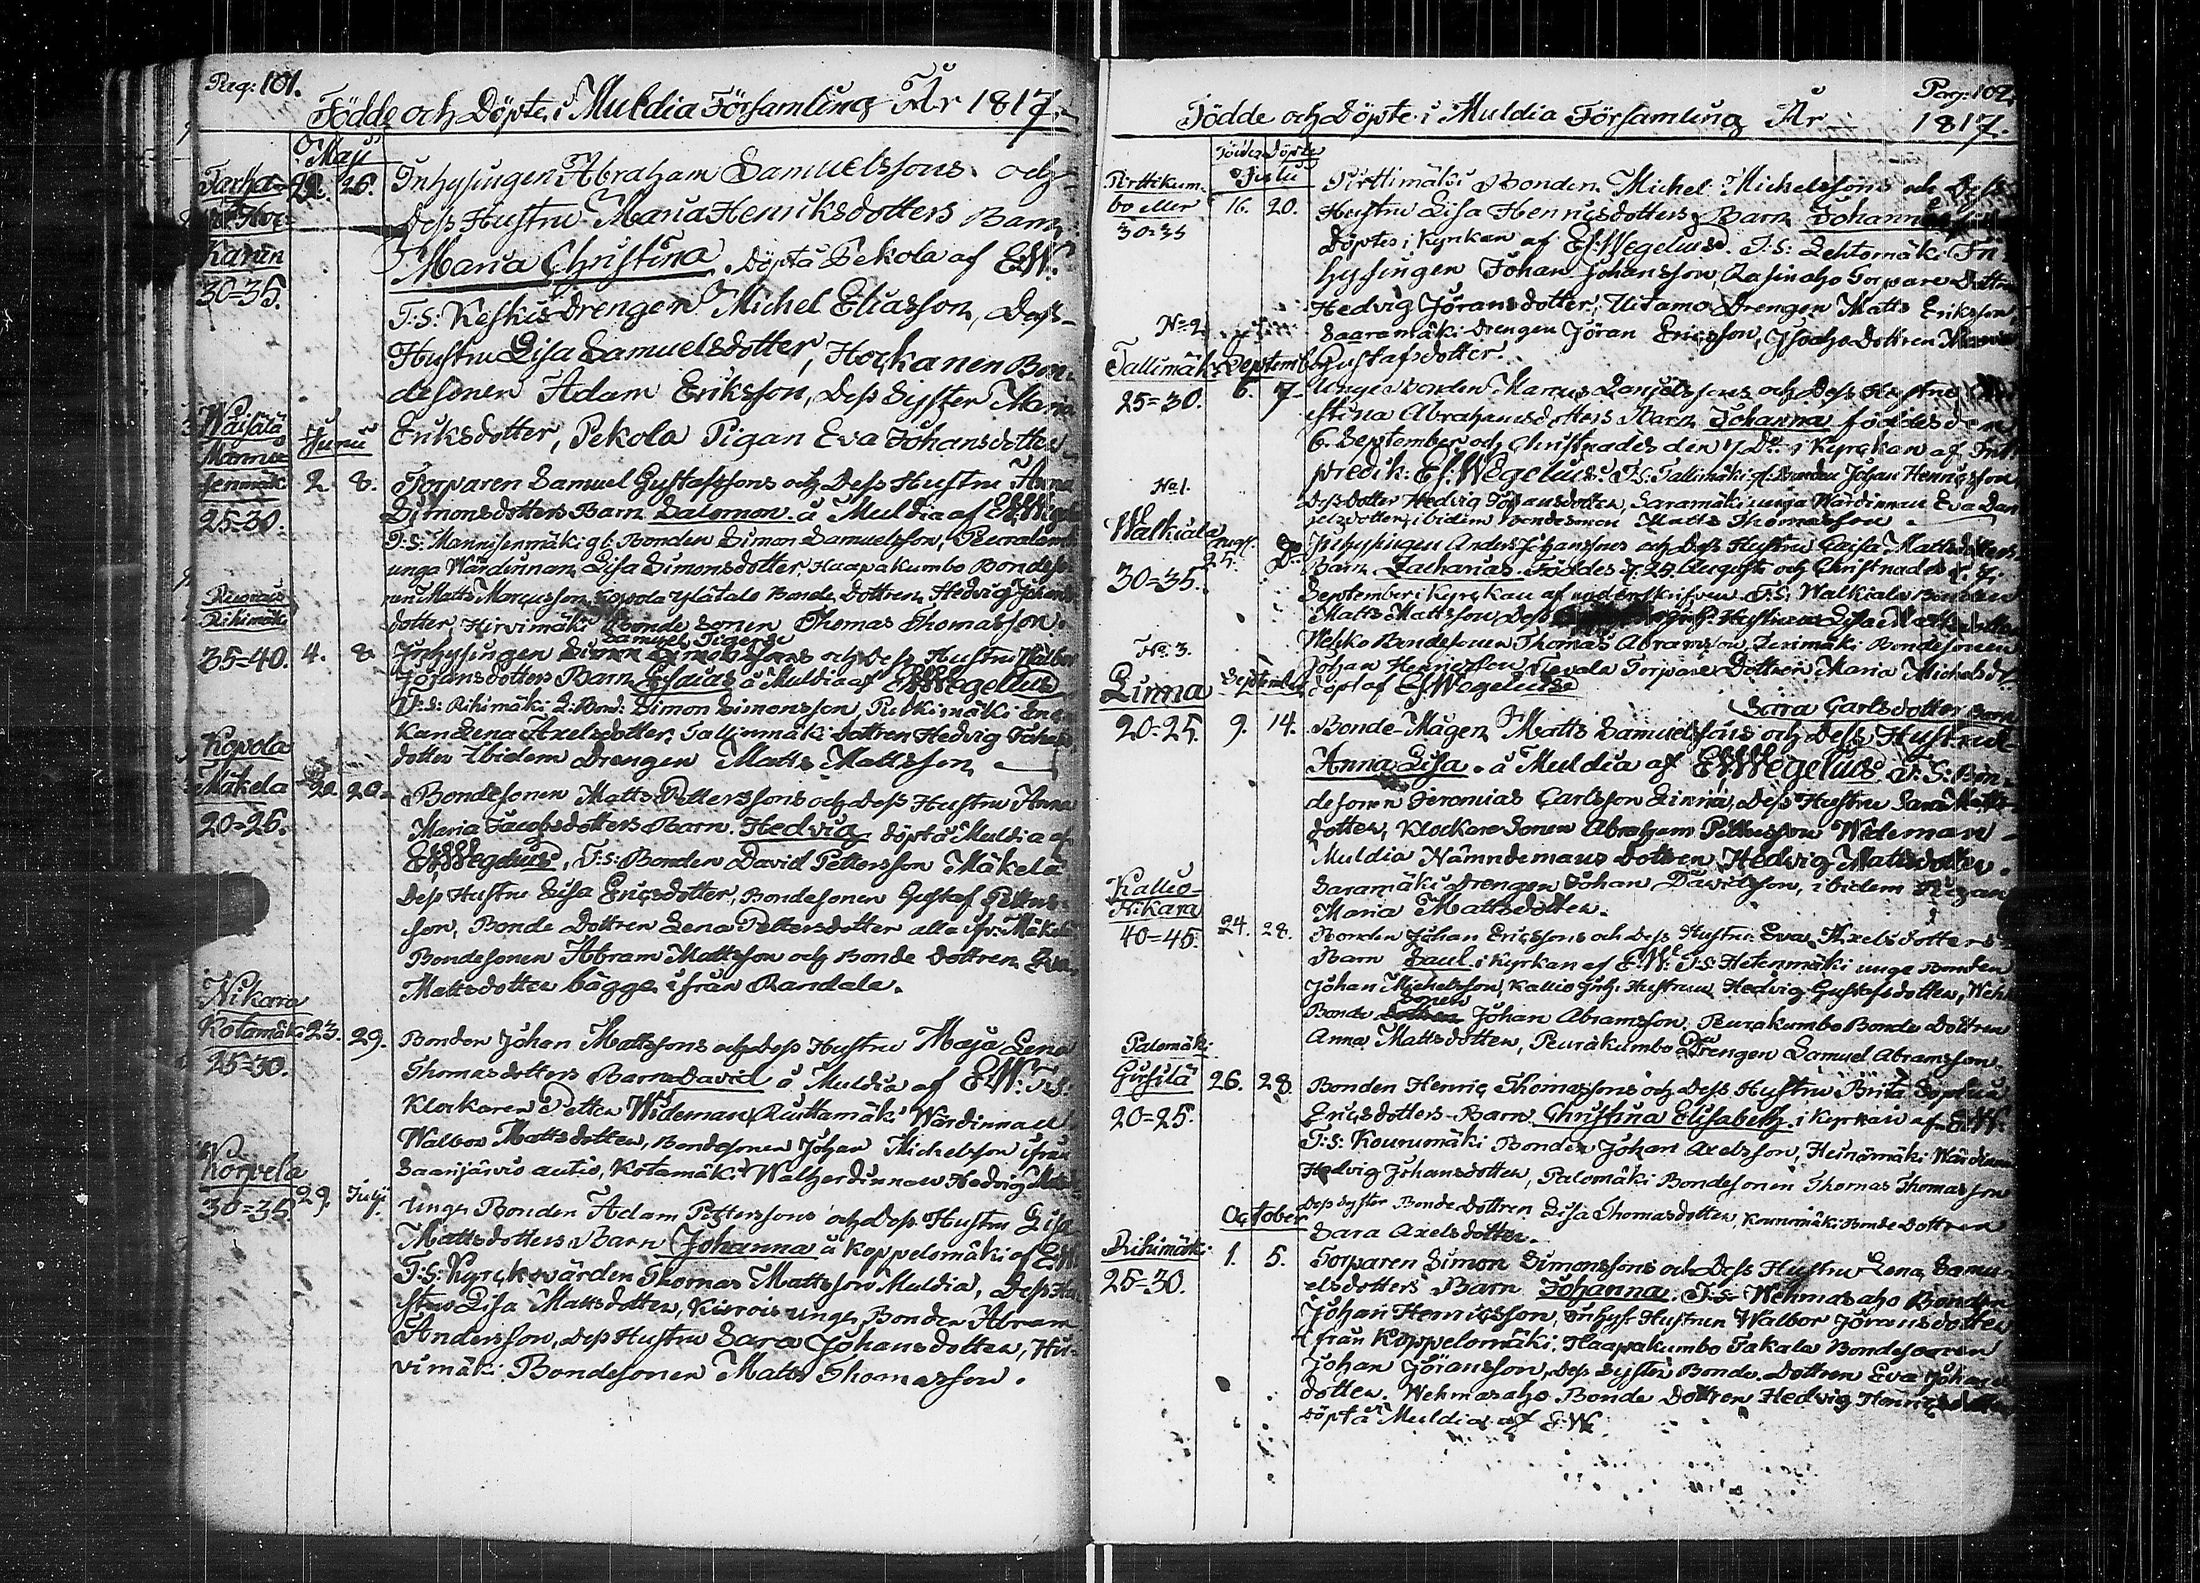 Pag: 101.
Födde och Döpte i Muldia Församling År 1817.
Maji
22. 26. Inhysingen Abraham Samuelssons och
Dess Hustru Maria Henriksdotters Barn
Karin
Maria Christina. Döpt å Pekola af E.W.
30=35.
T:S: Keskis Drengen Michel Eliasson, Dess
Hustru Lisa Samuelsdotter, Hockanen Bon-
desonen Adam Eriksson, Dess Syster Maria
Eriksdotter, Pekola Pigan Eva Johansdotter
Waisälä
Junii
2. 8. Torparen Samuel Gustafssons och Dess Hustru Anna
Simonsdotters Barn Salomon å Muldia af
25=30.
T:S: Mannisenmäki gl. Bonden Simon Samuelsson,
unga Wärdinnan Lisa Simonsdotter, Haapakumbo Bondeso-
nen Matts Marcusson, Kopola Ylätalo Bonde Dottren Hedvig Johans
dotter, Hirvimäki Bonde Sonen Thomas Thomasson.
Rihimäki
Samuel
35=40. 4. 8. Inhysingen Simonssons och Dess Hustru Walbor
Johansdotters Barn Esaias å Muldia af EWegelius
T:S: Rihimäki Simon Simonsson, Pukkimäki En-
kan Lena Axelsdotter, Tallimäki Dottren Hedvig Johans
dotter Ibidem Drengen Matts Mattsson
Kopola
Mäkela 20. 20. Bondesonen Matts Petterssons och Dess Hustru Anna
20=25. Maria Jacobsdotters Barn Hedvig döpt å Muldia af
EWegelius, T:S: Bonden David Pettersson Mäkelä
Dess Hustru Lisa Ericsdotter, Bondesonen Gustaf Petters-
son, Bonde Dottren Lena Pettersdotter alla ifr: Mäkelä
Bondesonen Abram Mattsson och Bonde Dottren Eva
Mattsdotter bägge ifrån Randala.
Nikara
Kotamäki 23. 29. Bonden Johan Mattssons och Dess Hustru Maja Lena
25=30. Thomasdotters Barn David å Muldia af E.W: T:S:
Klockaren Petter Wideman, Ruuttamäki Wärdinnan
Walbor Mattsdotter, Bondesonen Johan Michelsson ifrån
Saarijärvis autio, Kotamäki Hedvig
Korpela
30=35. 29. Julii Unga Bonden Adam Petterssons och Dess Hustru Lisa
Mattsdotters Barn Johanna å Koppelomäki af E.W.
T:S: Kyrckovärden Thomas Mattsson Muldia, Dess Hu-
stru Lisa Mattsdotter, Kivois unga Bonden Abram
Andersson, Dess Hustru Sara Johansdotter, Hir-
vimäki Bondesonen Matts Thomasson.
Pag: 102.
Födde och Döpte i Muldia Församling År 1817.
Födde Döpte
Julii
Pirttikum-
bo eller 16. 20. Pirttimäki Bonden Michel Michelssons och Dess
30=35 Hustru Lisa Henricsdotters Barn Johannes
Döptes i Kyrkan af E:Wegelius. T:S: Lehtomäki In-
hysingen Johan Johansson, Torpare Dottren
Hedvig Jöransdotter, Uitamo Drengen Matts Eriksson
No 2. Saaramäki Drengen Jöran Ericsson, Dottren
Gustafsdotter.
Tallimäki Septemb:
25=30. 6. 7. Unga Bonden Marcus Danielssons och Dess Hustru
stina Abrahamsdotters Barn Johanna föddes den
6. September och Christnades den 7. Do i Kyrckan af
predik: E:Wegelius. T:S: Tallimäki gl. Bonden Johan Henricsson
No 1. Dess Dotter Hedvig Johansdotter, Saramäki unga Wärdinnan Eva Dan
ielsdotter, ibidem Bondesonen Matts Thomasson.
Walkiala
Aug:
25. Inhysingen Anders Johanssons och Dess Hustru Caisa Mattsdotters
30=35. Barn Zacharias. Föddes d. 25. Augusti och Christnades d. 7.
September i Kyrckan af T:S: Walkiala Bonden
Matts Mattsson, Dess Hustrun Lisa
Wehko Bondesonen Thomas Abramsson, Bondesonen
No 3. Johan Henricsson, Torpare Dottren Maria Michelsd:
Linna September döpt af E:Wegelius
Sara Carlsdotter Barn
20=25. 9. 14. Bonde-Mågen Matts Samuelssons och Dess Hustrus
Anna Lisa å Muldia af E:Wegelius. T:S: Bon-
desonen Jeremias Carlsson Linna, Dess Hustru Sara Matts-
dotter, Klockare Sonen Abraham Pettersson Wideman
Muldia Nämndemans Dottren Hedvig Mattsdotter.
Kallio- Saramäki Drengen Johan Davidsson, ibidem Pigan
Nikara Maria Mattsdotter.
40=45. 24. 28. Bonden Johan Ericssons och Dess Hustru Eva Axelsdotters
Barn Saul i Kyrkan af E.W: T:S: Hetenmäki unge Bonden
Johan Michelsson, Kallio Inh: Hustrun Hedvig Gustafsdotter, Wehk
Sonen
Bonde Johan Abramsson. Peurakumbo Bonde Dottren
Anna Mattsdotter, Peurakumbo Drengen Samuel Abramsson.
Palomäki
26. 28. Bonden Henric Thomassons och Dess Hustru Brita Sophia
20=25. Ericsdotters Barn Christina Elisabeth i Kyrkan af E.W:
T:S: Kourumäki Bonden Johan Axelsson, Heinämäki Wärdinnan
Hedvig Johansdotter, Palomäki Bondesonen Thomas Thomasson
Dess Syster Bonde Dottren Lisa Thomasdotter, Kourumäki Bonde Dottren
October Sara Axelsdotter.
Rihimäki 1. 5. Torparen Simon Simonssons och Dess Hustru Lena Samu-
25=30. elsdotters Barn Johanna. T:S: Wehmasaho Bonden
Johan Henricsson, Inhys: Hustrun Walbor Jöransdotter
från Koppelomäki, Haapakumbo Takala Bondesonen
Johan Jöransson, Dess Syster Bonde Dottren Eva Johans
dotter. Wehmasaho Bonde Dottren Hedvig Henricsdotter
döpt å Muldia af E:W